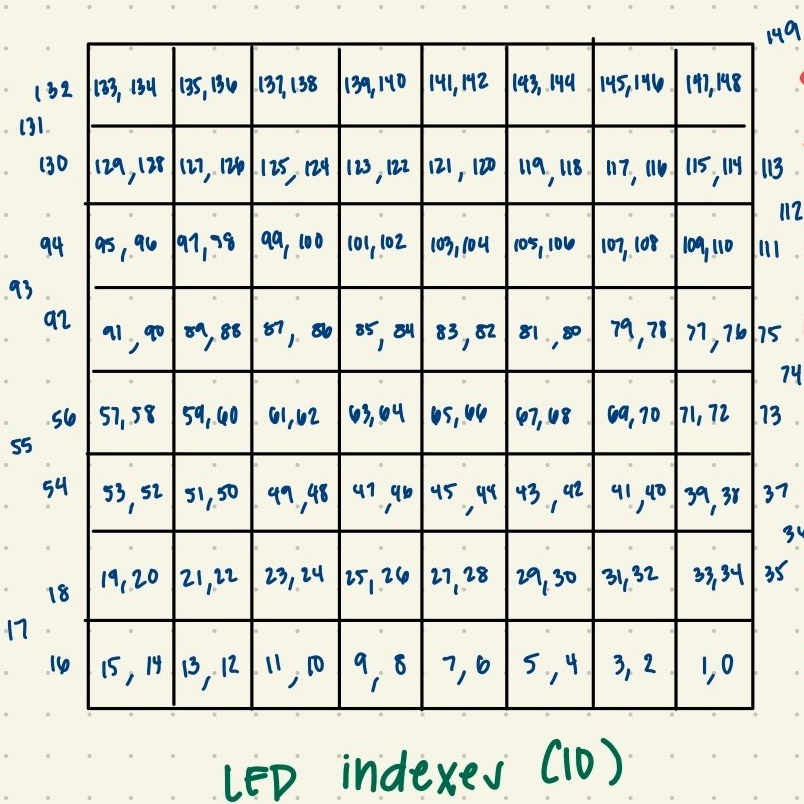 149
132 133, 134 135, 136 137, 138 139, 140 141, 142 143, 144 145, 146 147, 148
131
130 129, 128 127, 126 125, 124 123, 122 121, 120 119, 118 117, 116 115, 114 113
112
94 95, 96 97, 98 99, 100 101, 102 103, 104 105, 106 107, 108 109, 110 111
93
92 91, 90 89, 88 87, 86 85, 84 83, 82 81, 80 79, 78 77, 76 75
74
56 57, 58 59, 60 61, 62 63, 64 65, 66 67, 68 69, 70 71, 72 73
55
54 53, 52 51, 50 49, 48 47, 46 45, 44 43, 42 41, 40 39, 38 37
36
18 19, 20 21, 22 23, 24 25, 26 27, 28 29, 30 31, 32 33, 34 35
17
16 15, 14 13, 12 11, 10 9, 8 7, 6 5, 4 3, 2 1, 0
LED indexes (10)